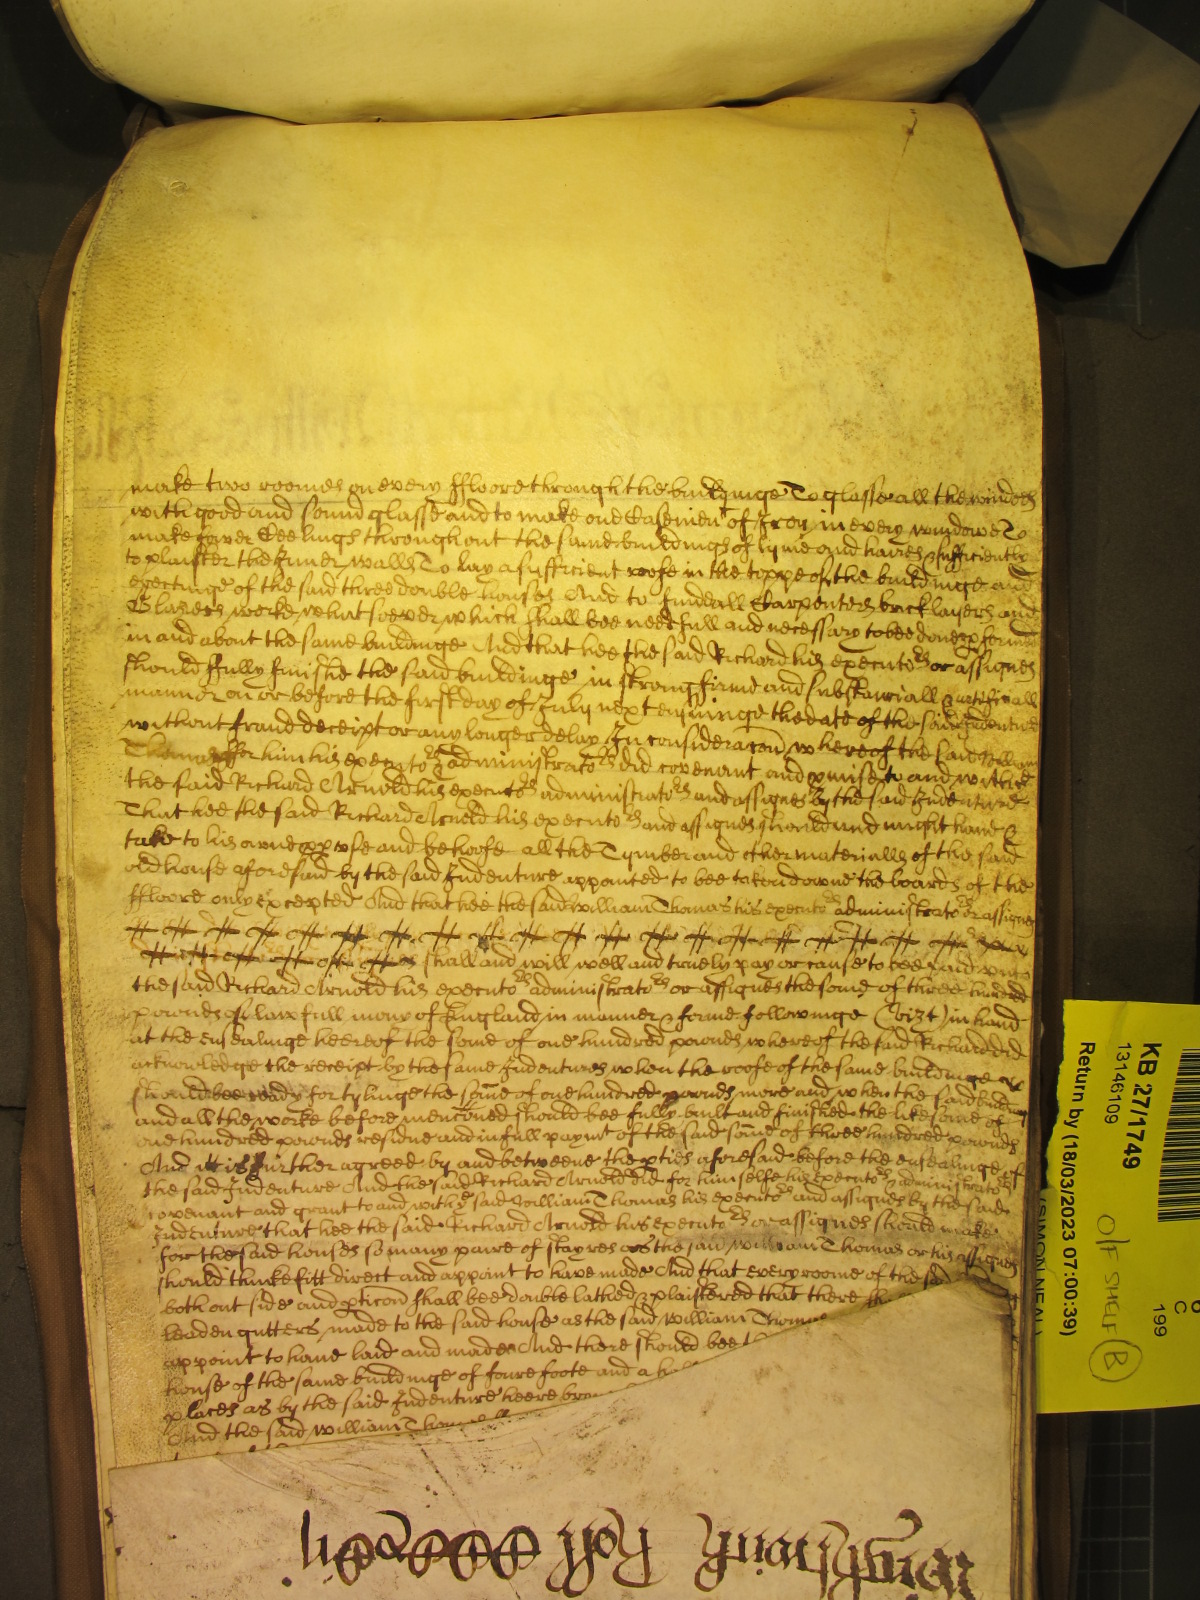 make two roomes on every ffloore through the buildinge To glasse all the windows
with good and sound glasse and to make one Casement of Iron in every windowe To
make faver Ceelings throughout the same buildings of lyme and haires & sufficiently
to plaister the Inner walls To lay a sufficient roofe in the toppe of the buildinge and
erectinge of the said three double houses And to finde all Carpenters bricklayers and
Glaziers worke whatsoever which shall bee needfull and necessary to bee done & pformed
in and about the same buildinge And that hee the said Richard his executors or assignes
should ffully finishe the said buildinge in strong firme and substantiall & artificiall
manner on or before the first day of July next ensuinge the date of the said Indenture
without fraud deceipt or any longer delay In consideracon whereof the said William
Thomas for him his executors & administrators did covenant and pmise to and with
the said Richard Arnold his executors administrators and assignes by the said Indenture
That hee the said Richard Arnold his executors and assignes should and might have &
take to his owne pp use and behoofe all the Tymber and other materialls of the said
old house aforesaid by the said Indenture appointed to bee taken downe the boards of the
ffloore only excepted And that hee the said William Thomas his executors administrators or assignes
shall and will well and truely pay or cause to bee paid unto
the said Richard Arnold his executors administrators or assignes the some of three hundred
pounds of lawfull mony of England in manner & forme followinge (vizt) in hand
at the ensealinge heereof the some of one hundred pounds whereof the said Richard did
acknowledge the receipt by the same Indentures when the roofe of the same buildinge
should bee ready for tylinge the some of one hundred pounds more and when the said buildinge
and all the worke before mencioned should bee fully built and finished the like some of
one hundred pounds residue and in full paymt of the said some of three hundred pounds
And it is further agreed by and betweene the pties aforesaid before the ensealinge of
the said Indenture And the said Richard Arnold did for himselfe his executors administrators
covenant and grant to and with the said William Thomas his executors and assignes by the said
Indenture that hee the said Richard Arnold his executors or assignes should make
for the said houses so many paire of stayres as the said William Thomas or his assignes
should thinke fitt direct and appoint to have made And that every roome of the said
both out side and pticon shall bee double lathed & plaistered that there
leaden gutters made to the said house as the said William Thomas
appoint to have laid and made And there should bee
house of the same buildinge of foure foote and a
places as by the said Indenture heere
And the said William Thomas
KB 27/1749
13146109
Return by (18/03/2023 07:00:39)
(SIMON NEAL)
O/F SHELF B
C
199